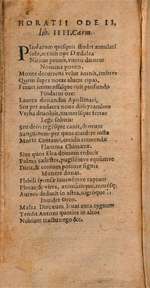 HORATII ODE II,
lib. IIII. Carm.
Pindarum quisquis studet æmulari
Iule, ceratis ope Dædalea
Nititur pennis, vitreo daturus
Nomina ponto.
Monte decurrens velut amnis, imbres
Quem super notas aluere ripas,
Fervet immensusque ruit profundo
Pindarus ore:
Laurea donandus Apollinari,
Seu per audaces nova dithyrambos
Verba devolvit, numerisque fertur
Lege solutis:
Seu deos, regesque canit, deorum
Sanguinem: per quos cecidere iusta
Morte Centauri, cecidit tremendæ
Flamma Chimæræ.
Sive quos Elea domum reducit
Palma cælestes, pugilemve equumve
Dicit, & centum potiore signis
Munere donat.
Flebili sponsæ iuvenemve raptum
Plorat: & vires, animumque, moresque
Aureos deducit in astra, nigroque
Invidet Orco.
Multa Dircæum levat aura cygnum
Tendit Antoni quoties in altos
Nubium tractus: ego &c.